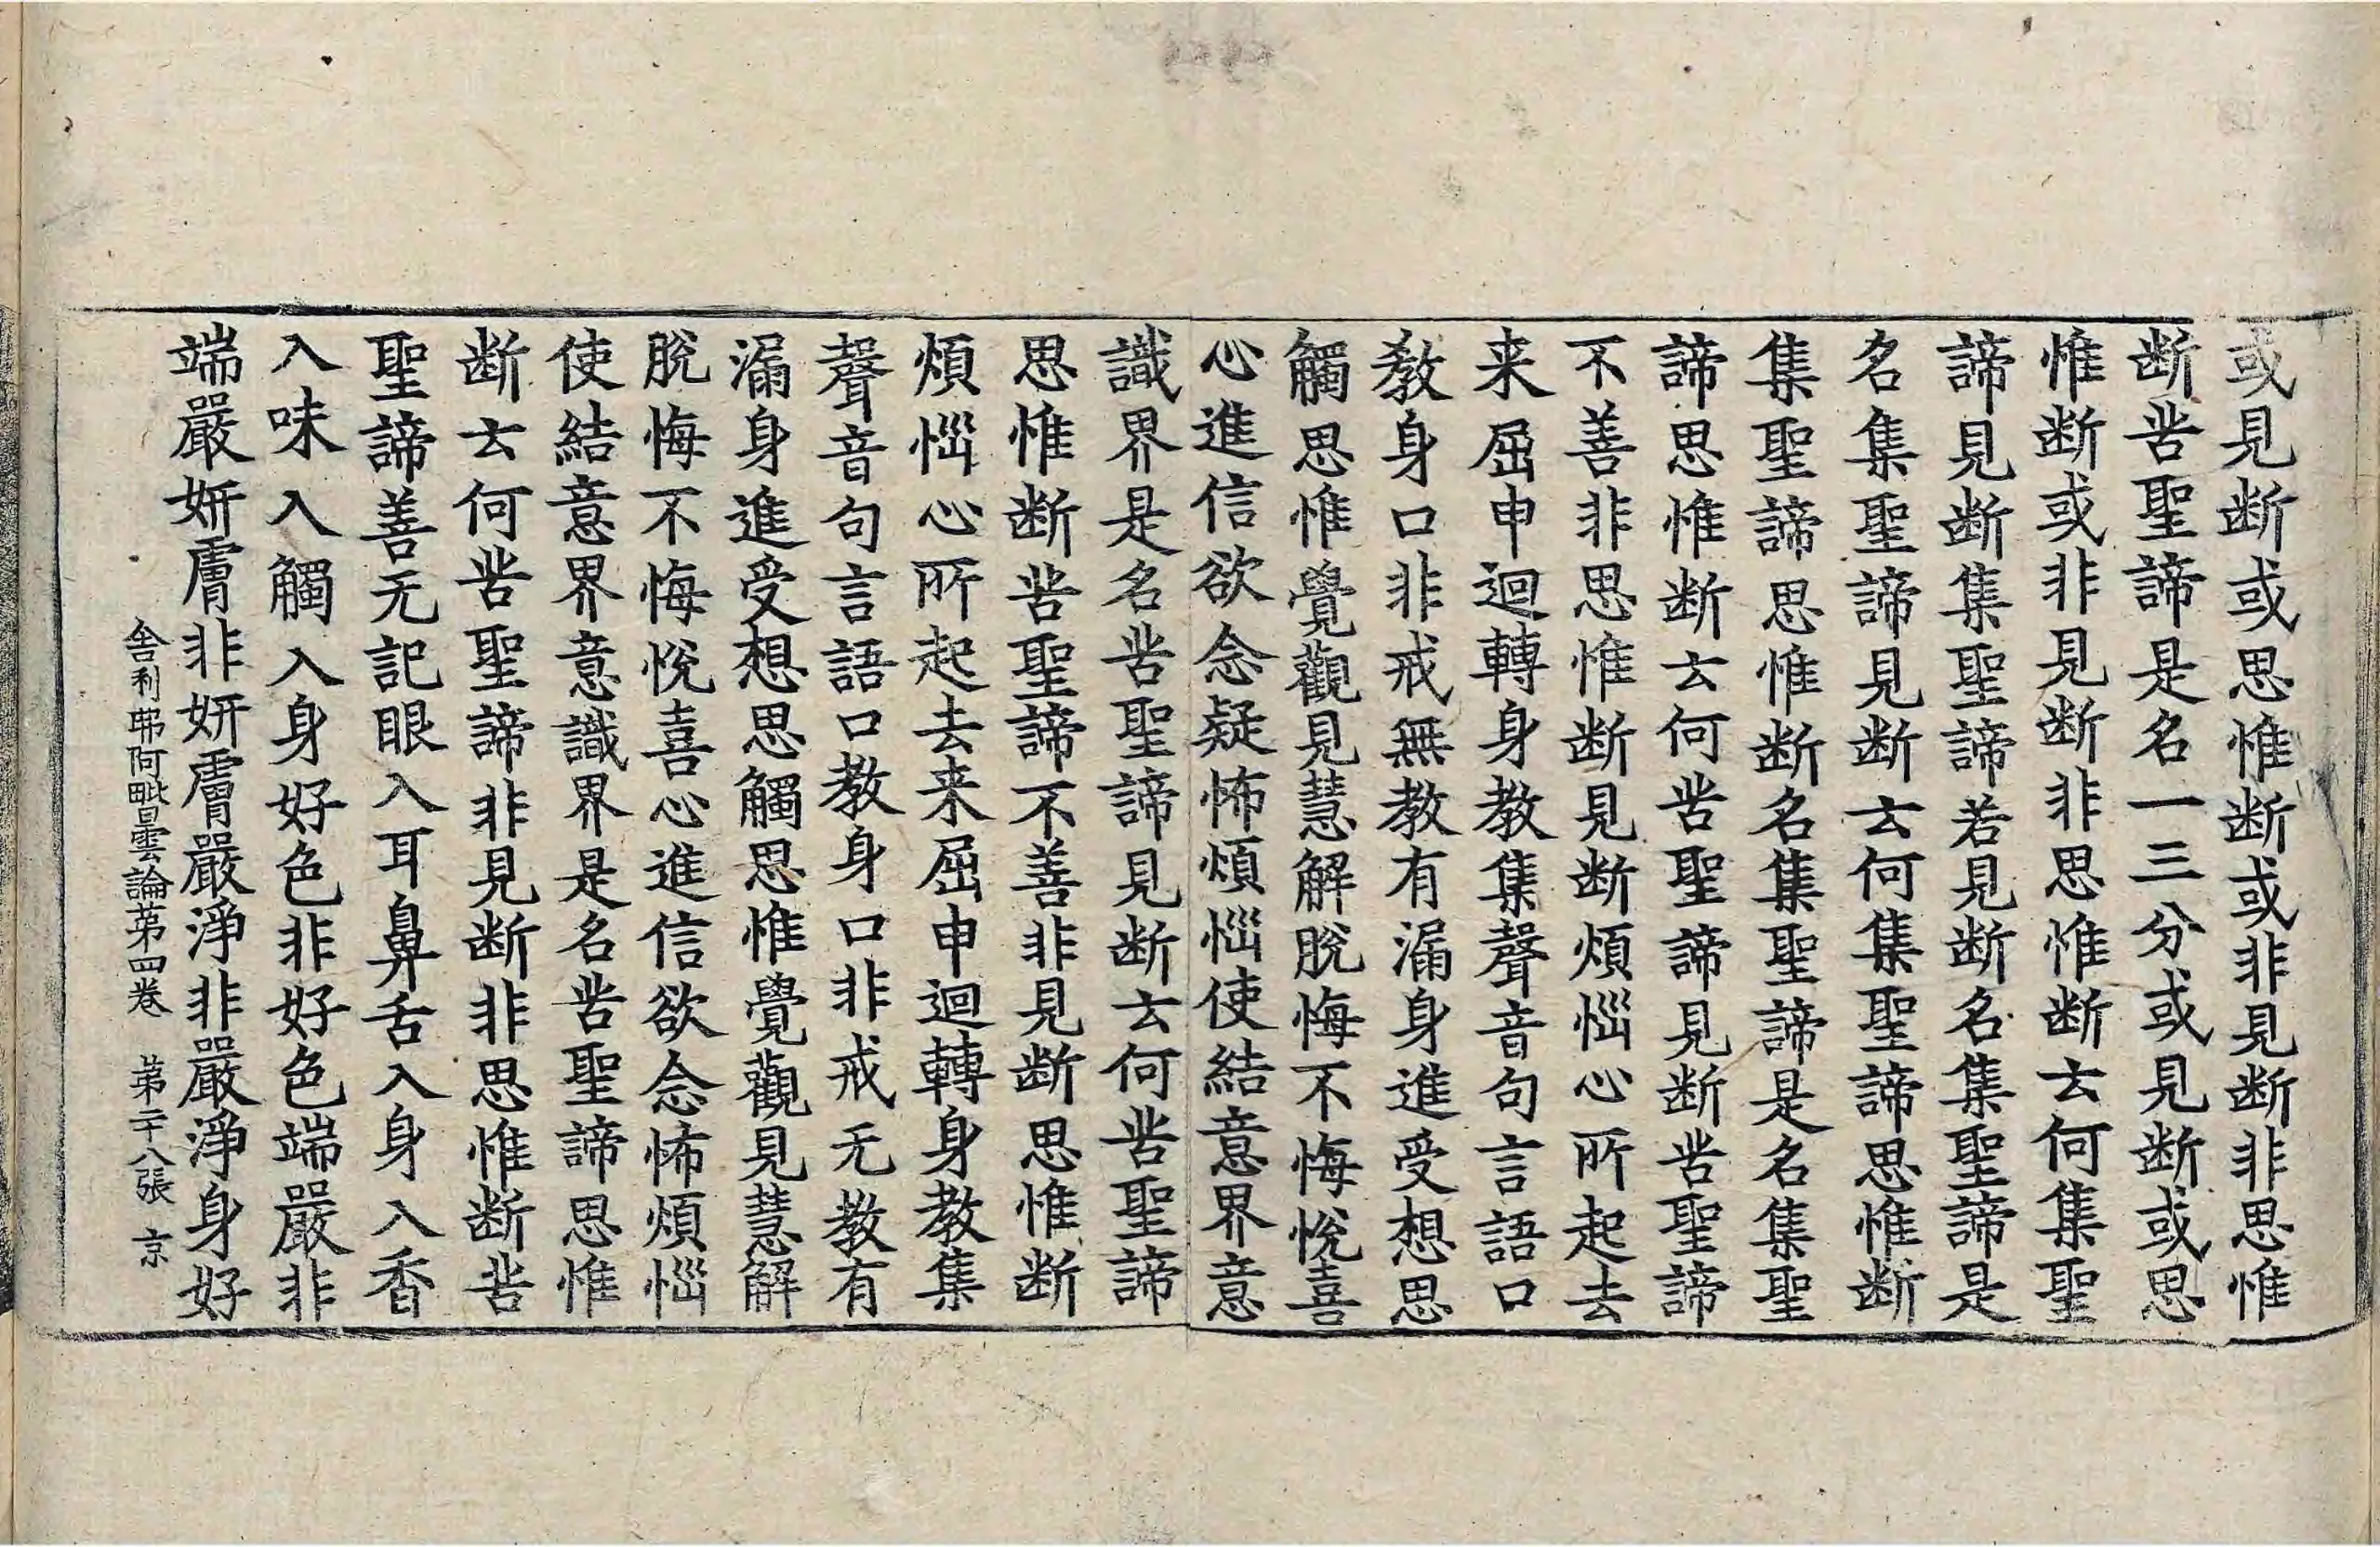 或見断或思惟断或非見断非思惟
断苦聖諦是名一三分或見断或思
惟断或非見断非思惟断云何集聖
諦見断集聖諦若見断名集聖諦是
名集聖諦見断云何集聖諦思惟断
集聖諦思惟断名集聖諦是名集聖
諦思惟断云何苦聖諦見断苦聖諦
不善非思惟断見断煩惱心所起去
来屈申迴轉身教集聲音句言語口
教身口非戒無教有漏身進受想思
觸思惟覺觀見慧解脫悔不悔悅喜
心進信欲念疑怖煩惱使結意界意
識界是名苦聖諦見断云何苦聖諦
思惟断苦聖諦不善非見断思惟断
煩惱心所起去来屈申迴轉身教集
聲音句言語口教身口非戒无教有
漏身進受想思觸思惟覺觀見慧解
脫悔不悔悅喜心進信欲念怖煩惱
使結意界意識界是名苦聖諦思惟
断云何苦聖諦非見断非思惟断苦
聖諦善无記眼入耳鼻舌入身入香
入味入觸入身好色非好色端嚴非
端嚴妍膚非妍膚嚴淨非嚴淨身好
舍利弗阿毗曇論苐四卷 苐二十八張 京